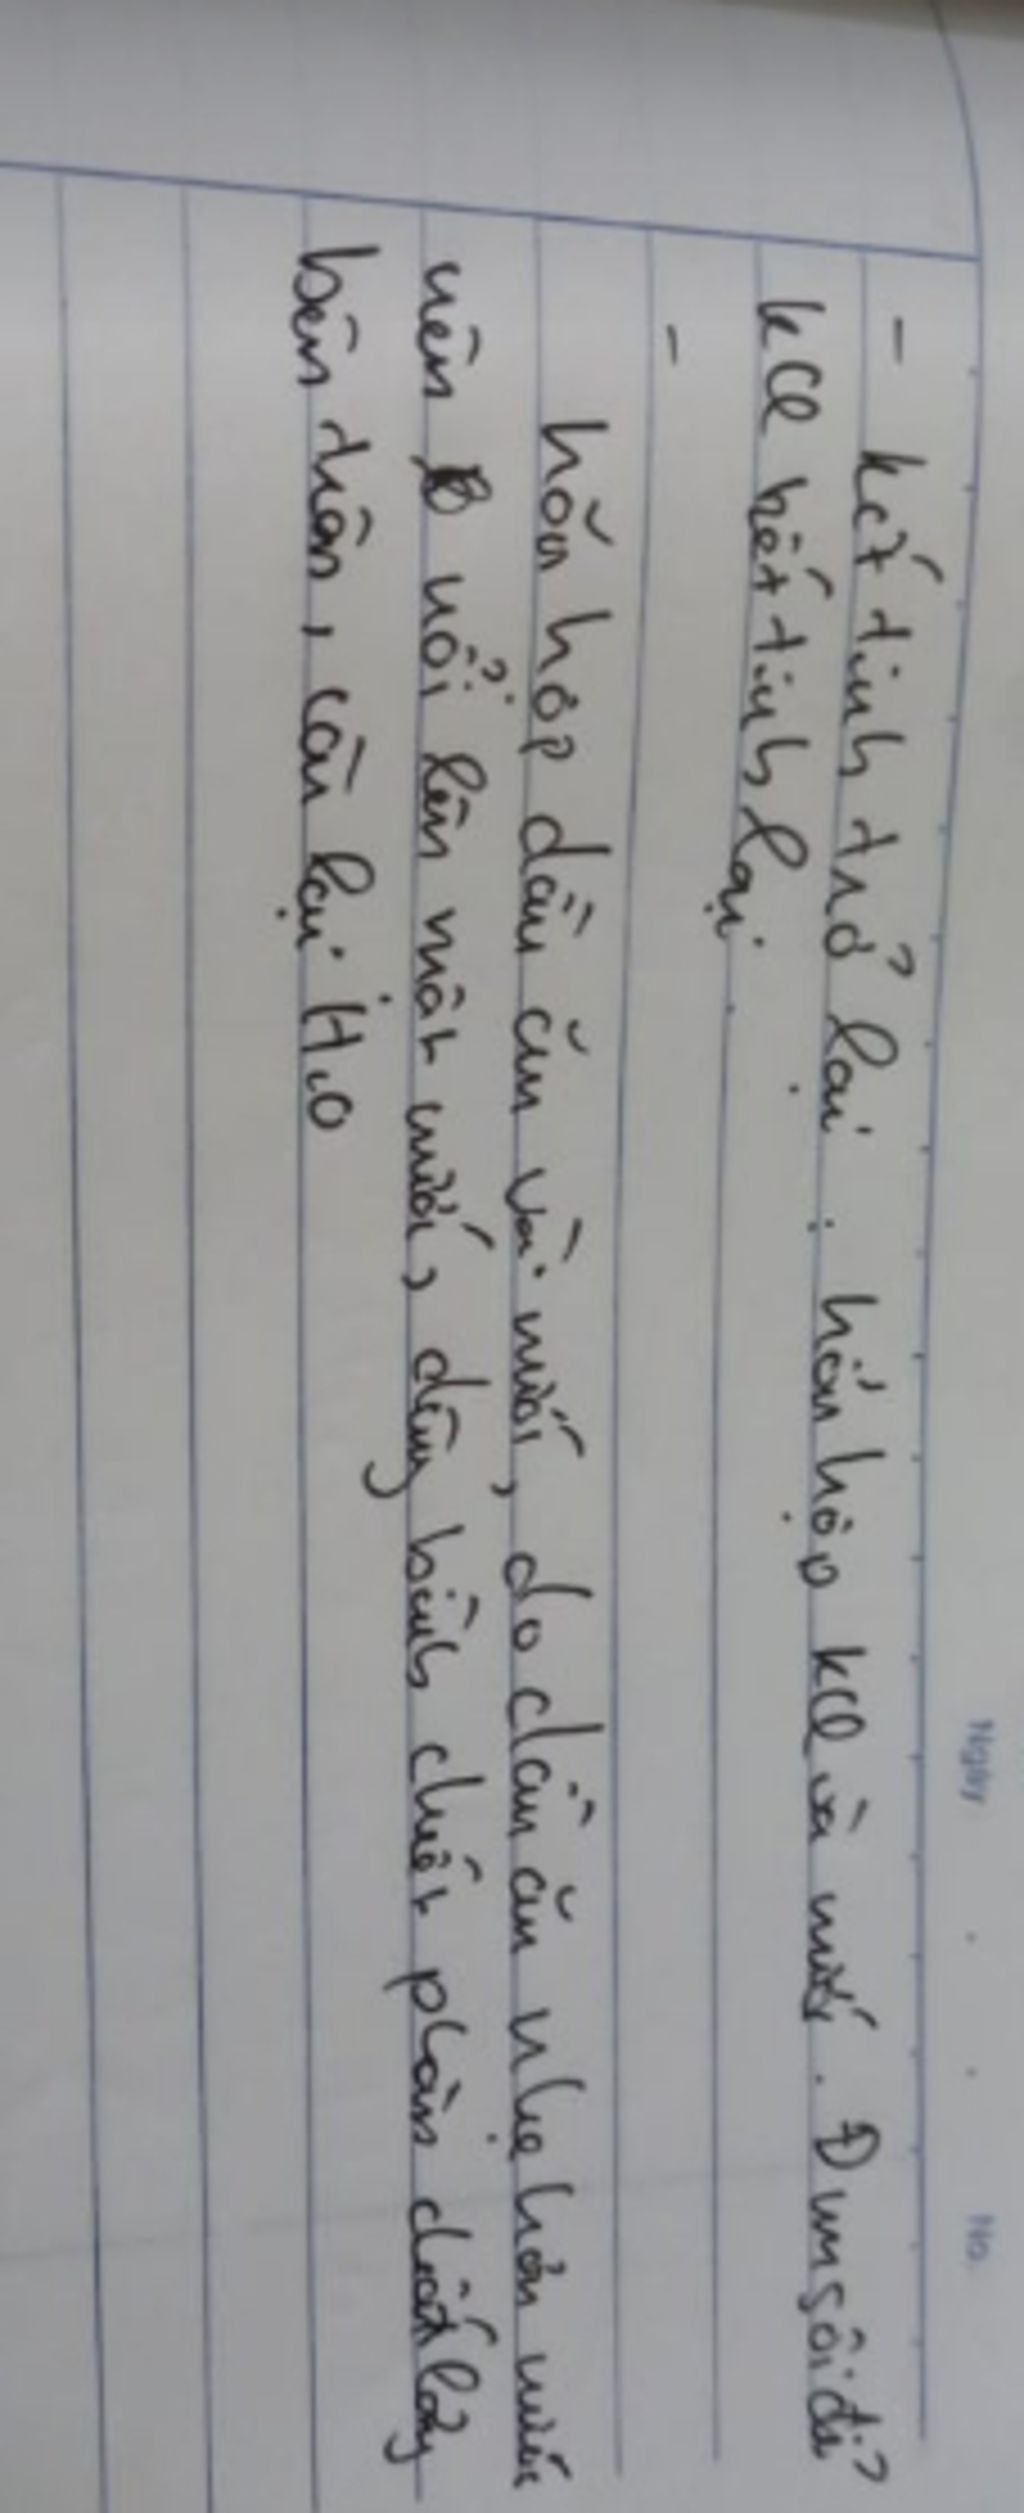 Ngày . . No.
- kết tinh trở lại : hỗn hợp KCl và nước. Đun sôi để
KCl kết tinh lại.
-
hỗn hợp dầu ăn và nước, do dầu ăn nhẹ hơn nước
nên nổi lên mặt nước, dùng bình chiết phần chất lỏng
bên trên, còn lại H₂O